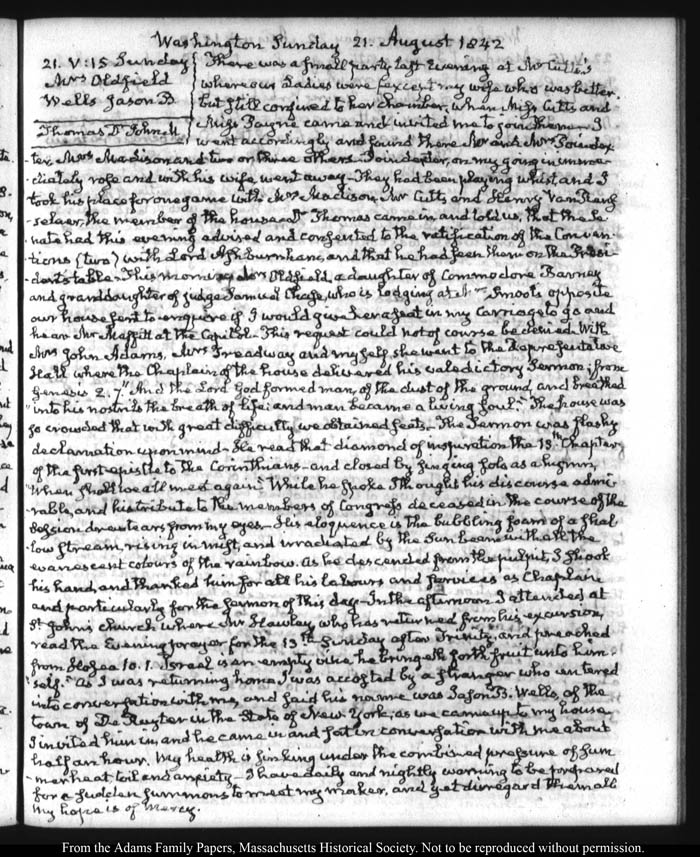 Washington Sunday 21. August 1842
21. V:15 Sunday
Mrs Oldfield
Wells Jason B
Thomas Dr John M
There was a small party last Evening at Mr Cutts's
where our Ladies were except my wife who was better.
but still confined to her chamber, when Miss Cutts and
Miss Payne came and invited me to join them — I
went accordingly and found there Mr and Mrs Poindex
-ter, Mrs Madison and two or three others. Poindexter, on my going in imme-
-diately rose and with his wife went away — They had been playing whist and I
took his place for one game with Mrs Madison, Mr Cutts and Henry Van Rens-
-selaer, the member of the house. Dr Thomas came in and told us, that the Se-
-nate had this evening advised and consented to the ratification of the Conven-
-tions (two) with Lord Ashburnham, and that he had seen them on the Presi-
-dent's table — This morning Mrs Oldfield, a daughter of Commodore Barney
and granddaughter of judge Samuel Chase, who is lodging at Smoot's opposite
our house sent to enquire if I would give her a seat in my Carriage to go and
hear Mr Maffitt at the Capitol. This request could not of course be denied. With
Mrs John Adams, Mrs Treadway and myself she went to the Representative
Hall where the Chaplain of the house delivered his valedictory Sermon; from
Genesis 2. 7. "And the Lord God formed man, of the dust of the ground, and breathed
"into his nostrils the breath of life: and man became a living soul." The house was
so crowded that with great difficulty we obtained seats — The Sermon was flashy
declamation upon mind — He read that diamond of inspiration the 13th Chapter,
of the first epistle to the Corinthians — and closed by singing solo as a hymn,
"When shall we all meet again" While he spoke I thought his discourse admi-
-rable, and his tribute to the members of Congress deceased in the course of the
Session drew tears from my eyes — His eloquence is the bubbling foam of a shal-
-low stream, rising in mist, and irradiated by the Sun beam with all the
evanescent colours of the rainbow. As he descended from the pulpit, I shook
his hand, and thanked him for all his labours and services as Chaplain
and particularly for the sermon of this day — In the afternoon I attended at
St John's church where Mr Hawley, who has returned from his excursion,
read the Evening prayer for the 13th Sunday after Trinity, and preached
from Hosea 10. 1. Israel is an empty vine he bringeth forth fruit unto him-
"self." As I was returning home I was accosted by a stranger who entered
into conversation with me, and said his name was Jason B. Wells, of the
town of De Ruyter in the State of New-York; as we came up to my house,
I invited him in, and he came in and sat in conversation with me about
half an hour. My health is sinking under the combined pressure of Sum
-mer heat toil and anxiety — I have daily and nightly warning to be prepared
for a sudden summons to meet my maker, and yet disregard them all
My hope is of Mercy.
From the Adams Family Papers, Massachusetts Historical Society. Not to be reproduced without permission.